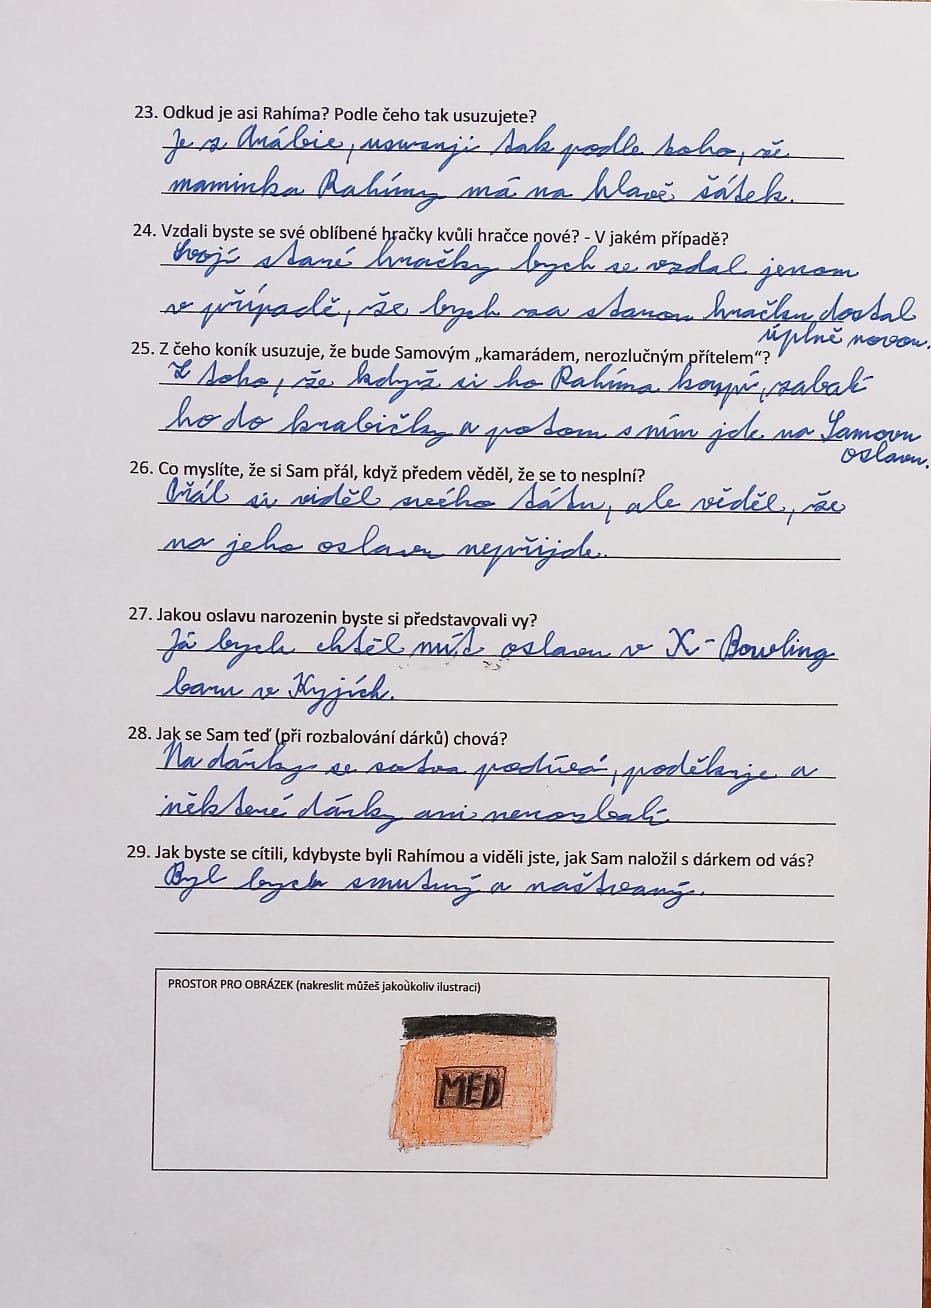 23. Odkud je asi Rahíma? Podle čeho tak usuzujete?
Je z Arábie, usuzuji tak podle toho, že
maminka Rahímy má na hlavě šátek.
24. Vzdali byste se své oblíbené hračky kvůli hračce nové? - V jakém případě?
Svojí staré hračky bych se vzdal jenom
v případě, že bych za starou hračku dostal
úplně novou.
25. Z čeho koník usuzuje, že bude Samovým „kamarádem, nerozlučným přítelem“?
Z toho, že když si ho Rahíma koupí, zabalí
ho do krabičky a potom s ním jde na Samovu
oslavu.
26. Co myslíte, že si Sam přál, když předem věděl, že se to nesplní?
Přál si viděl svého tátu, ale věděl, že
na jeho oslavu nepřijde.
27. Jakou oslavu narozenin byste si představovali vy?
Já bych chtěl mít oslavu v X-Bowling
baru v Kyjích.
28. Jak se Sam teď (při rozbalování dárků) chová?
Na dárky se sotva podívá, poděkuje a
některé dárky ani nerozbalí.
29. Jak byste se cítili, kdybyste byli Rahímou a viděli jste, jak Sam naložil s dárkem od vás?
Byl bych smutný a naštvaný.
PROSTOR PRO OBRÁZEK (nakreslit můžeš jakoùkoliv ilustraci)
MED